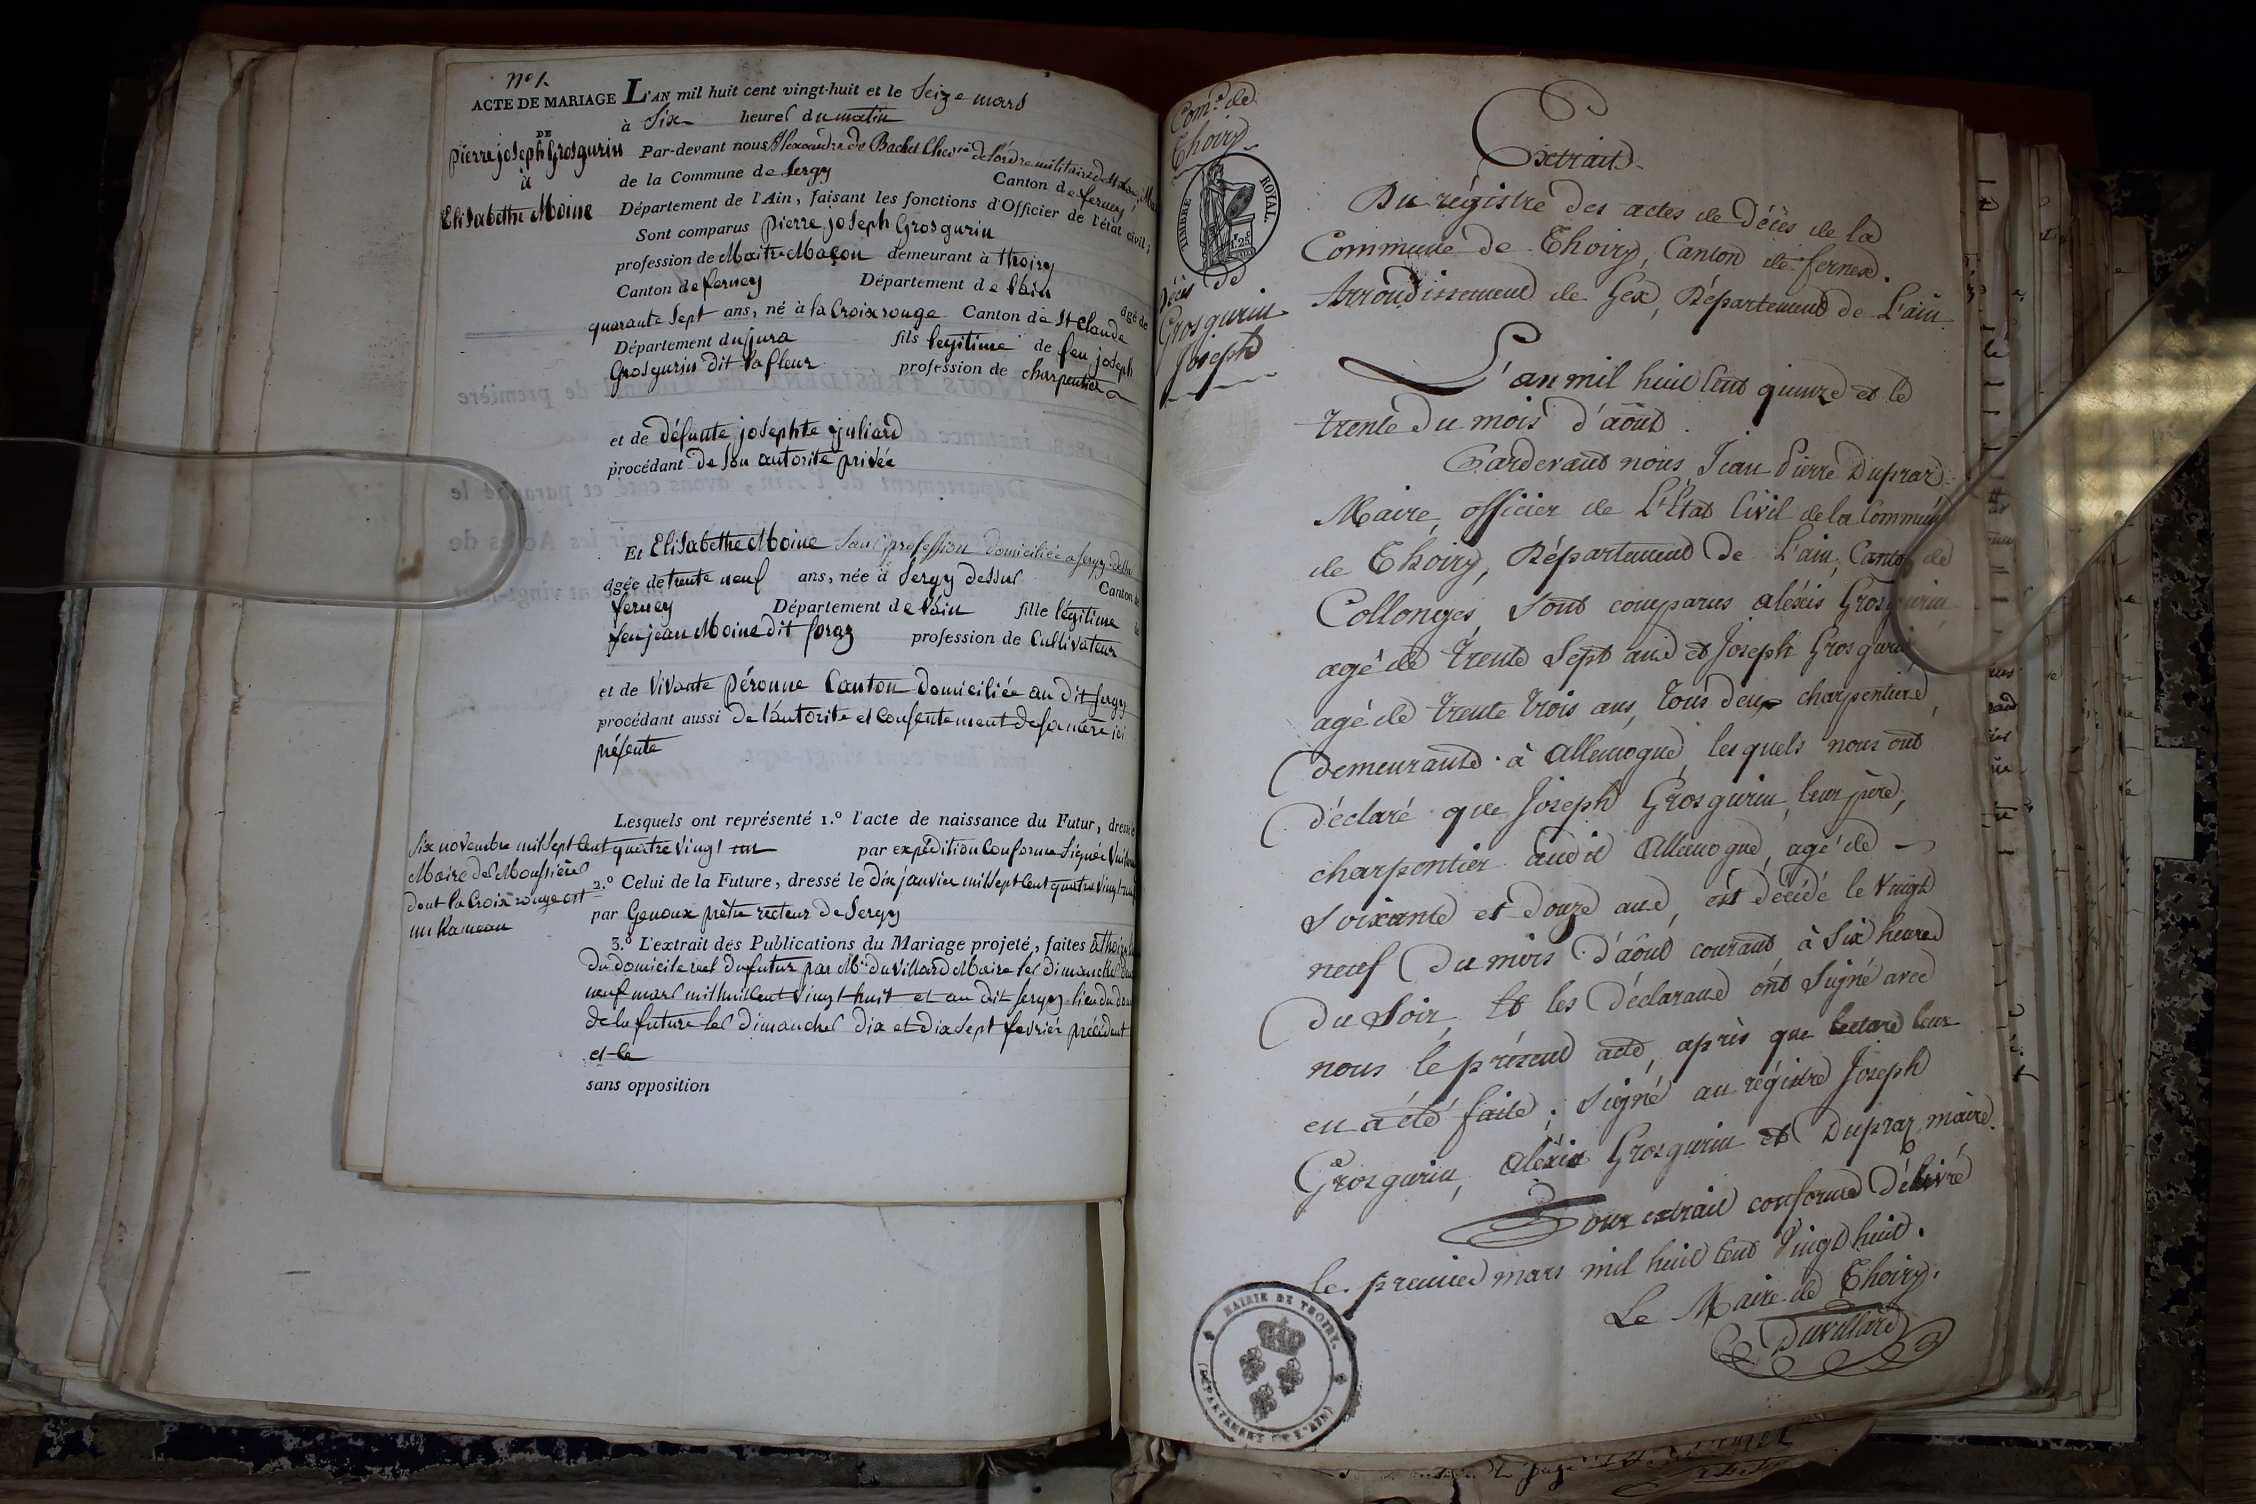 N° 1.
ACTE DE MARIAGE
DE
pierre joseph Grosgurin
à
Elisabethe Moine
L'AN mil huit cent vingt-huit et le Seize mars
à Six heures du matin
Par-devant nous Alexandre de Bachet Chev. de l'ordre militaire de St Louis
de la Commune de Sergy Canton de ferney
Département de l'Ain, faisant les fonctions d'Officier de l'état civil;
Sont comparus pierre joseph Grosgurin
profession de Maitre Maçon demeurant à thoiry
Canton de ferney Département de l'ain âgé de
quarante Sept ans, né à la Croix rouge Canton de St Claude
Département du jura fils legitime de feu joseph
Grosgurin dit la fleur profession de charpentier
et de défunte josephte juliard
procédant de Son autorité privée
Et Elisabethe Moine Sans profession domiciliée a Sergy dessus
âgée de trente neuf ans, née à Sergy dessus Canton de
ferney Département de l'ain fille légitime de
feu jean Moine dit foraz profession de Cultivateur
et de Vivante péronne Canton domiciliée au dit Sergy
procédant aussi de l'autorité et consentement de sa mère ici
présente
Lesquels ont représenté 1.° l'acte de naissance du Futur, dressé le
Six novembre mil Sept Cent quatre vingt un par expédition Conforme Signée
Maire de Moussières
dont la Croix rouge est
un hameau
2.° Celui de la Future, dressé le dix janvier mil Sept Cent quatre vingt neuf
par Genoux prêtre recteur de Sergy
3.° L'extrait des Publications du Mariage projeté, faites à thoiry
du domicile réel du futur par Mr. duvillard Maire les dimanches
neuf mars mil huit Cent vingt huit et au dit Sergy lieu du
de la future les dimanches dix et dix Sept fevrier précédent
et le
sans opposition
Com.e de
Thoiry
TIMBRE ROYAL.
1.25
Décès de
Grosgurin
Joseph
Extrait
Du régistre des actes de Décès de la
Commune de Thoiry, Canton de fernex.
Arrondissement de Gex, Département de L'ain.
L'an mil huit Cent quinze et le
trente du mois d'août.
Pardevant nous Jean Pierre Duprax
Maire, officier de L'Etat Civil de la Commune
de Thoiry, Département de L'ain, Canton de
Collonges, Sont comparus alexis Grosgurin
agé de trente Sept ans et Joseph Grosgurin
agé de trente trois ans, tous deux charpentiers,
demeurants à allemogne, lesquels nous ont
déclaré que Joseph Grosgurin, leur père,
charpentier audit allemogne, agé de
Soixante et douze ans, est décédé le Vingt
neuf du mois d'août courant à Six heures
du Soir, Et les Déclarans ont Signé avec
nous le présent acte, après que lecture leur
en a été faite; Signé au régistre Joseph
Grosgurin, alexis Grosgurin et Duprax maire.
Pour extrait conforme Délivré
le premier mars mil huit Cent Vingt huit.
Le Maire de Thoiry.
Duvillard
MAIRIE DE THOIRY.
(DÉPARTEMENT DE L'AIN)